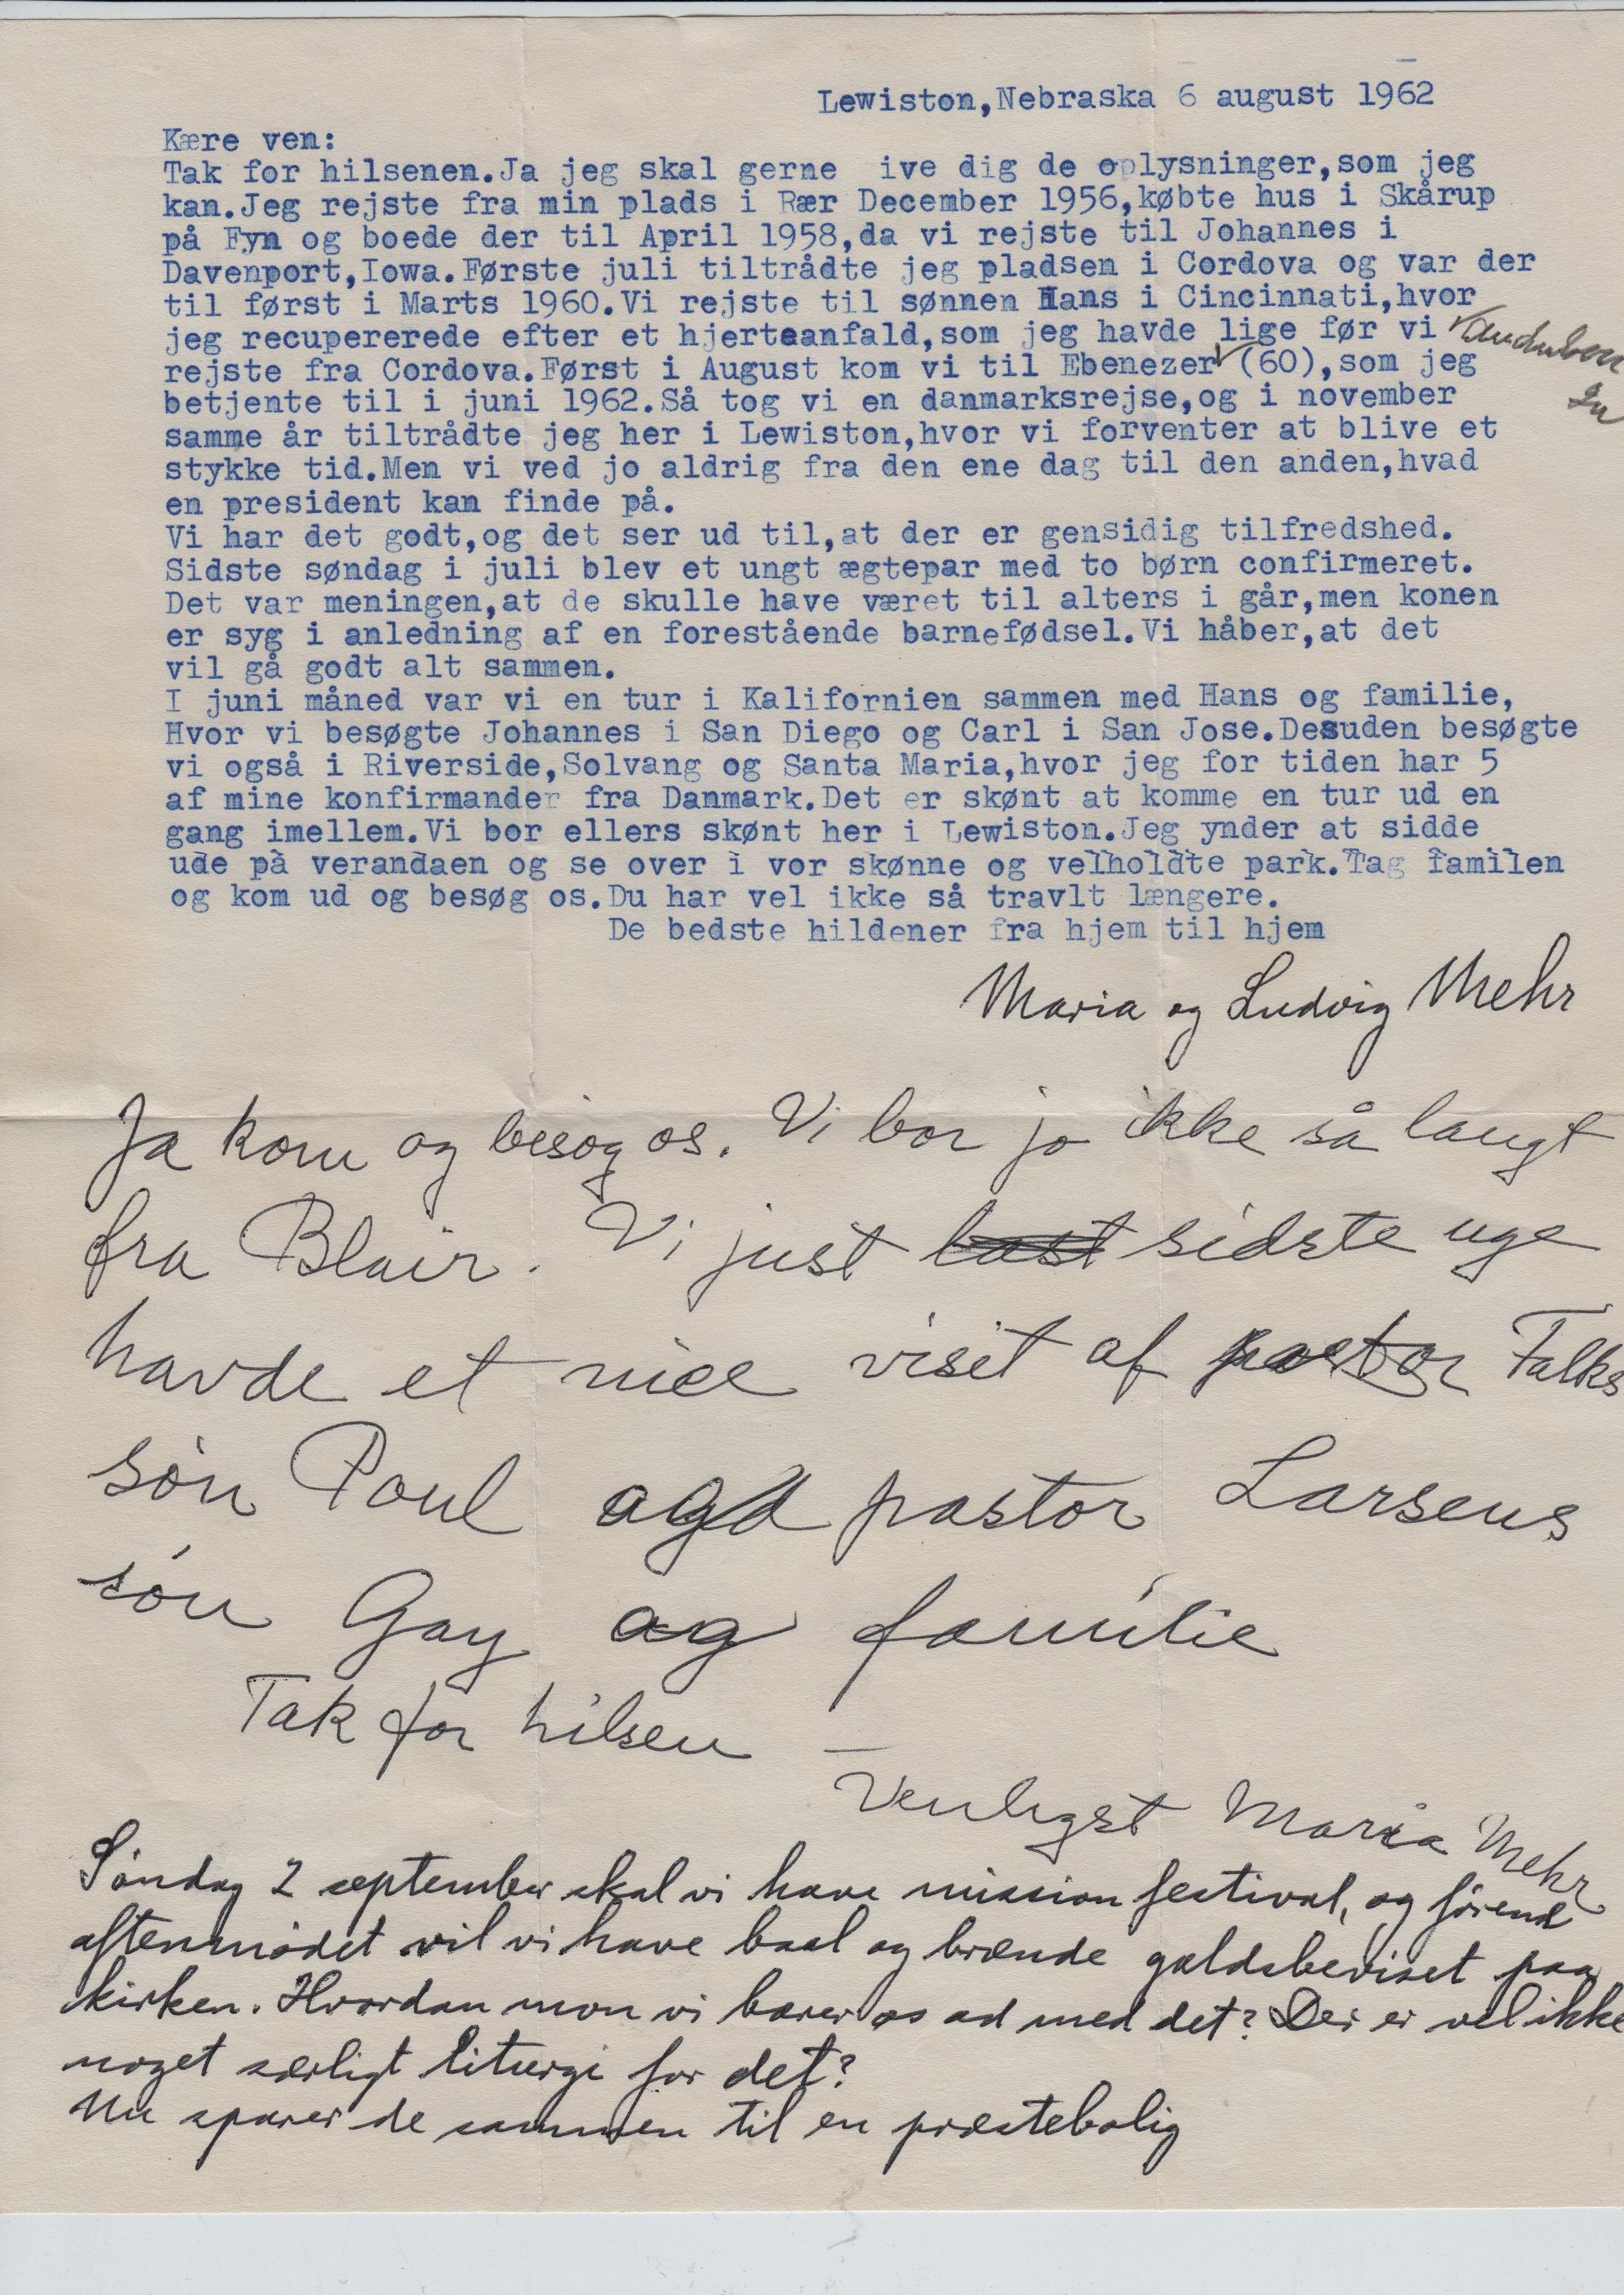 Lewiston,Nebraska 6 august 1962
Kære ven:
Tak for hilsenen.Ja jeg skal gerne  ive dig de oplysninger,som jeg
kan.Jeg rejste fra min plads i Rær December 1956,købte hus i Skårup
på Fyn og boede der til April 1958,da vi rejste til Johannes i
Davenport,Iowa.Første juli tiltrådte jeg pladsen i Cordova og var der
til først i Marts 1960.Vi rejste til sønnen Hans i Cincinnati,hvor
jeg recupererede efter et hjerteanfald,som jeg havde lige før vi
rejste fra Cordova.Først i August kom vi til Ebenezer✓(60),som jeg
✓Audubon
Ia
betjente til i juni 1962.Så tog vi en danmarksrejse,og i november
samme år tiltrådte jeg her i Lewiston,hvor vi forventer at blive et
stykke tid.Men vi ved jo aldrig fra den ene dag til den anden,hvad
en president kan finde på.
Vi har det godt,og det ser ud til,at der er gensidig tilfredshed.
Sidste søndag i juli blev et ungt ægtepar med to børn confirmeret.
Det var meningen,at de skulle have været til alters i går,men konen
er syg i anledning af en forestående barnefødsel.Vi håber,at det
vil gå godt alt sammen.
I juni måned var vi en tur i Kalifornien sammen med Hans og familie,
Hvor vi besøgte Johannes i San Diego og Carl i San Jose.Desuden besøgte
vi også i Riverside,Solvang og Santa Maria,hvor jeg for tiden har 5
af mine konfirmander fra Danmark.Det er skønt at komme en tur ud en
gang imellem.Vi bor ellers skønt her i Lewiston.Jeg ynder at sidde
ude på verandaen og se over i vor skønne og velholdte park.Tag familen
og kom ud og besøg os.Du har vel ikke så travlt længere.
De bedste hildener fra hjem til hjem
Maria og Ludvig Mehr
Ja kom og besøg os. Vi bor jo ikke så langt
fra Blair. Vi just last sidste uge
havde et nice viset af pastor Falks
søn Poul og pastor Larsens
søn Gay og familie
Tak for hilsen —
Venligst Maria Mehr
Søndag 2 september skal vi have mission festival, og førend
aftenmødet vil vi have baal og brænde gældsbeviset paa
kirken. Hvordan mon vi bærer os ad med det? Der er vel ikke
noget særligt liturgi for det?
Nu sparer de sammen til en præstebolig